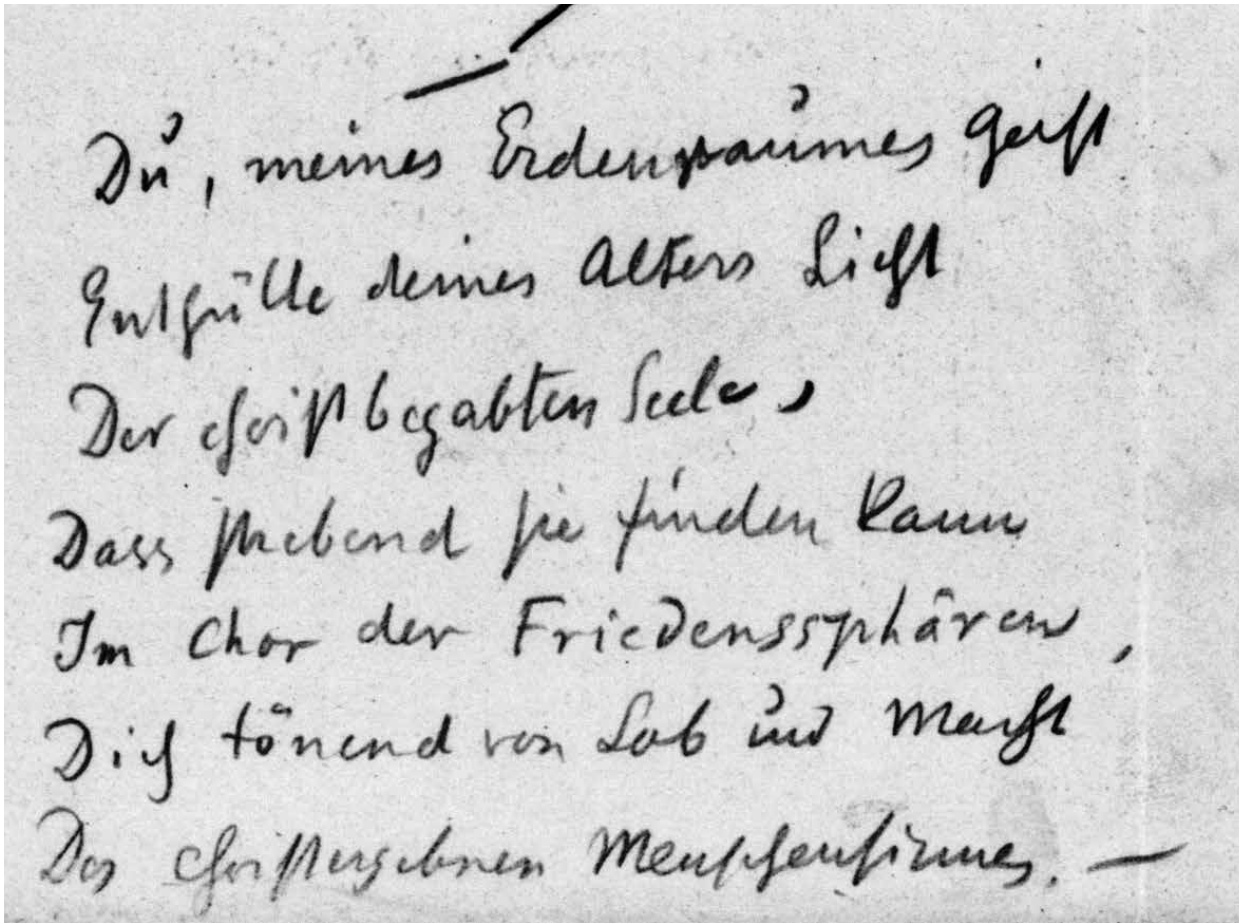 Du, meines Erdenraumes Geist
Enthülle deines Alters Licht
Der christbegabten Seele,
Dass strebend sie finden kann
Im Chor der Friedenssphären,
Dich tönend von Lob und Macht
Des christergebnen Menschensinnes. —